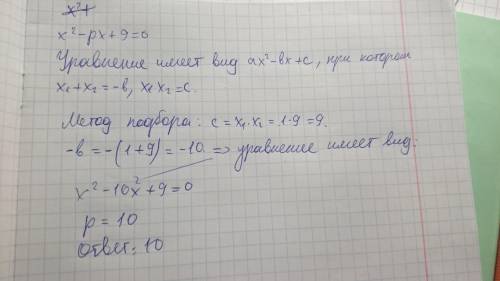 x²+
x²-px+9=0
Уравнение имеет вид ax²-вx+c, при котором
x₁+x₂=-в, x₁x₂=c.
Метод подбора: c=x₁·x₂=1·9=9.
-в=-(1+9)=-10 ⇒ уравнение имеет вид:
x²-10x²+9=0
p=10
Ответ: 10